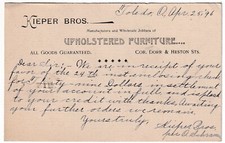 Toledo, O. Apr 25 '96
KIEPER BROS.
Manufacturers and Wholesale Dealers of
UPHOLSTERED FURNITURE
ALL GOODS GUARANTEED. COR. DORR & HERTON STS.
Dear Sir:- We are in receipt of your
favor of the 24th inst. enclosing check
for Thirty-nine Dollars in settlement
of your account in full and placed
to your credit with thanks. Awaiting
your further orders we remain
Yours truly,
Kieper Bros.
per